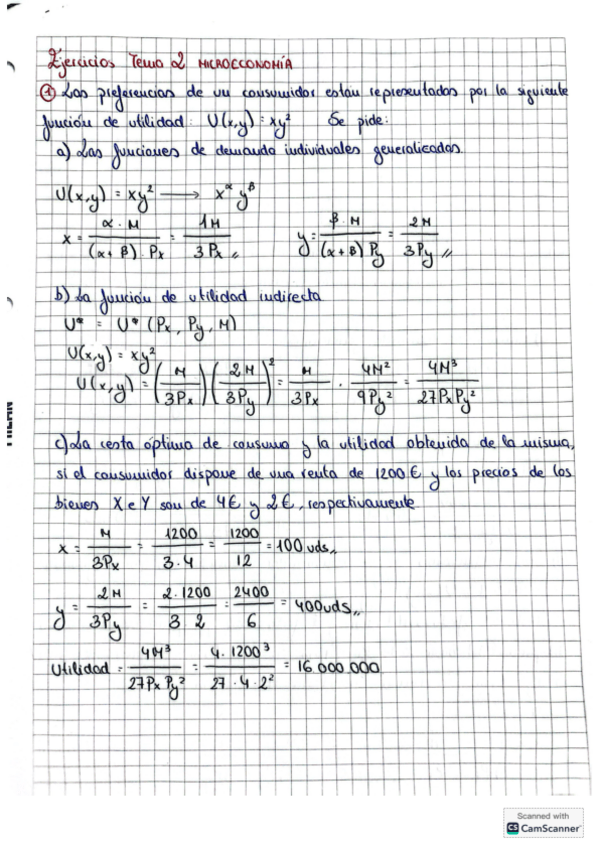 Ejercicios Tema 2 MICROECONOMÍA
① Las preferencias de un consumidor están representadas por la siguiente
función de utilidad: U(x,y) = xy² Se pide:
a) Las funciones de demanda individuales generalizadas.
U(x,y) = xy² ⟶ x^α y^β
x = α·M / (α+β)·Px = 1M / 3Px // y = β·M / (α+β) Py = 2M / 3Py //
b) La función de utilidad indirecta
U* = U* (Px, Py, M)
U(x,y) = xy²
U(x,y) = (M / 3Px) (2M / 3Py)² = M / 3Px · 4M² / 9Py² = 4M³ / 27PxPy²
c) La cesta óptima de consumo y la utilidad obtenida de la misma,
si el consumidor dispone de una renta de 1200 € y los precios de los
bienes X e Y son de 4€ y 2€, respectivamente
x = M / 3Px = 1200 / 3·4 = 1200 / 12 = 100 uds //
y = 2M / 3Py = 2·1200 / 3 2 = 2400 / 6 = 400 uds //
Utilidad = 4M³ / 27Px Py² = 4·1200³ / 27·4·2² = 16 000 000
MILAN
Scanned with
CS CamScanner